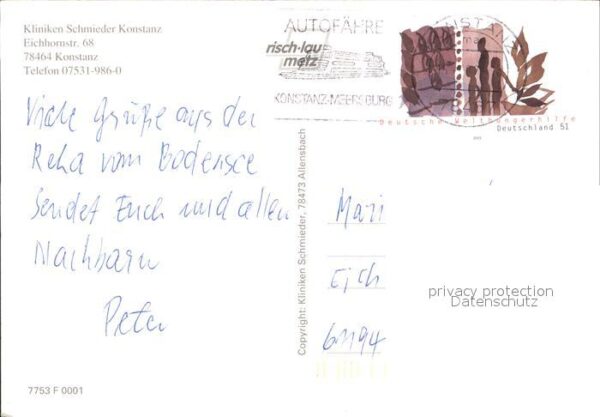 Kliniken Schmieder Konstanz
Eichhornstr. 68
78464 Konstanz
Telefon 07531-986-0
AUTOFÄHRE
KONSTANZ-MEERSBURG
risch-lau
metz
Deutsche Welthungerhilfe
Deutschland 51
Viele Grüße aus der
Reha vom Bodensee
sendet Euch und allen
Nachbarn
Peter
Copyright: Kliniken Schmieder, 78473 Allensbach
Mari
Eich
61194
privacy protection
Datenschutz
7753 F 0001